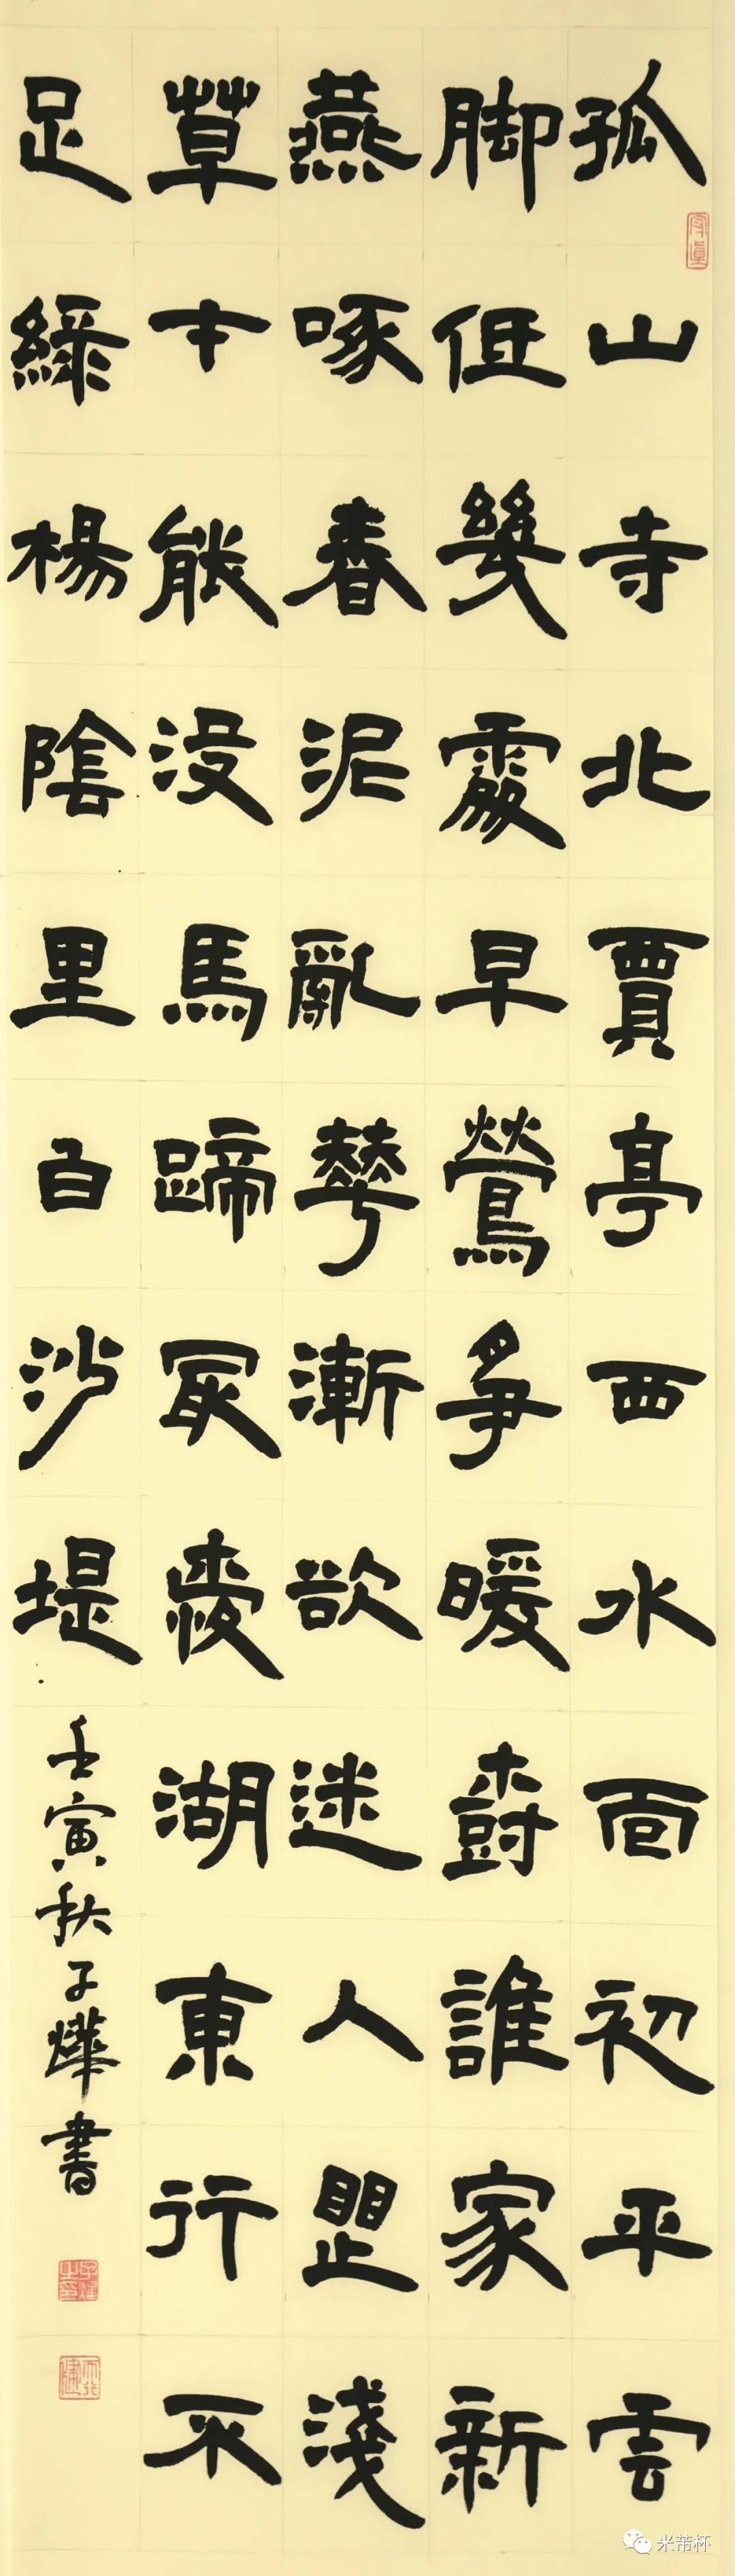 孤山寺北賈亭西水面初平雲
脚低幾處早鶯爭暖樹誰家新
燕啄春泥亂華漸欲迷人眼淺
草才能没馬蹄最愛湖東行不
足綠楊陰里白沙堤
壬寅秋子燁書
米芾杯